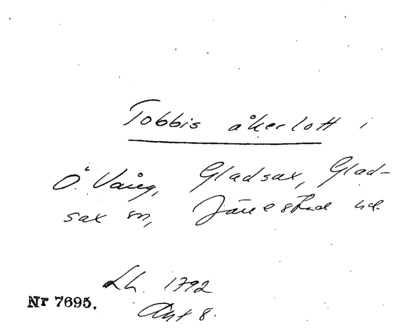 Tobbis åkerlott i
Ö. Vång, Gladsax, Glad-
sax sn, Järrestad hd.
Lh. 1792
Akt 8.
Nr 7695.